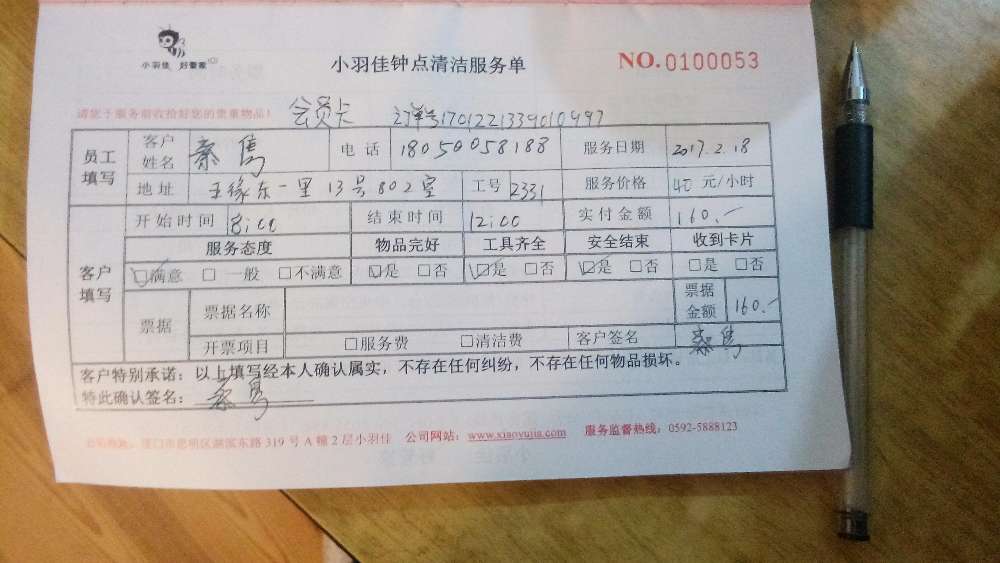 小羽佳 好管家
小羽佳钟点清洁服务单
NO.0100053
请您于服务前收拾好您的贵重物品!
会员卡 订单号1701221339010497
员工填写 客户姓名 秦隽 电话 18050058188 服务日期 2017.2.18
地址 玉缘东一里13号802室 工号 2331 服务价格 40 元/小时
客户填写 开始时间 8:00 结束时间 12:00 实付金额 160.-
服务态度 物品完好 工具齐全 安全结束 收到卡片
☑满意 □一般 □不满意 ☑是 □否 ☑是 □否 ☑是 □否 □是 □否
票据 票据名称 票据金额 160.-
开票项目 □服务费 □清洁费 客户签名 秦隽
客户特别承诺:以上填写经本人确认属实,不存在任何纠纷,不存在任何物品损坏。
特此确认签名: 秦隽
公司地址:厦门市思明区湖滨东路 319 号 A 幢 2 层小羽佳 公司网站:www.xiaoyujia.com 服务监督热线:0592-5888123